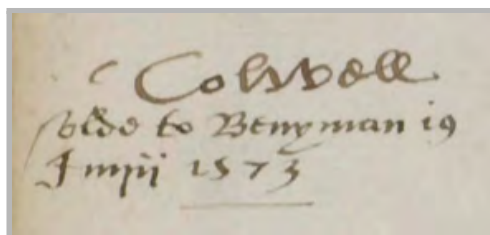 Colwell
solde to Benyman 19
Junii 1573